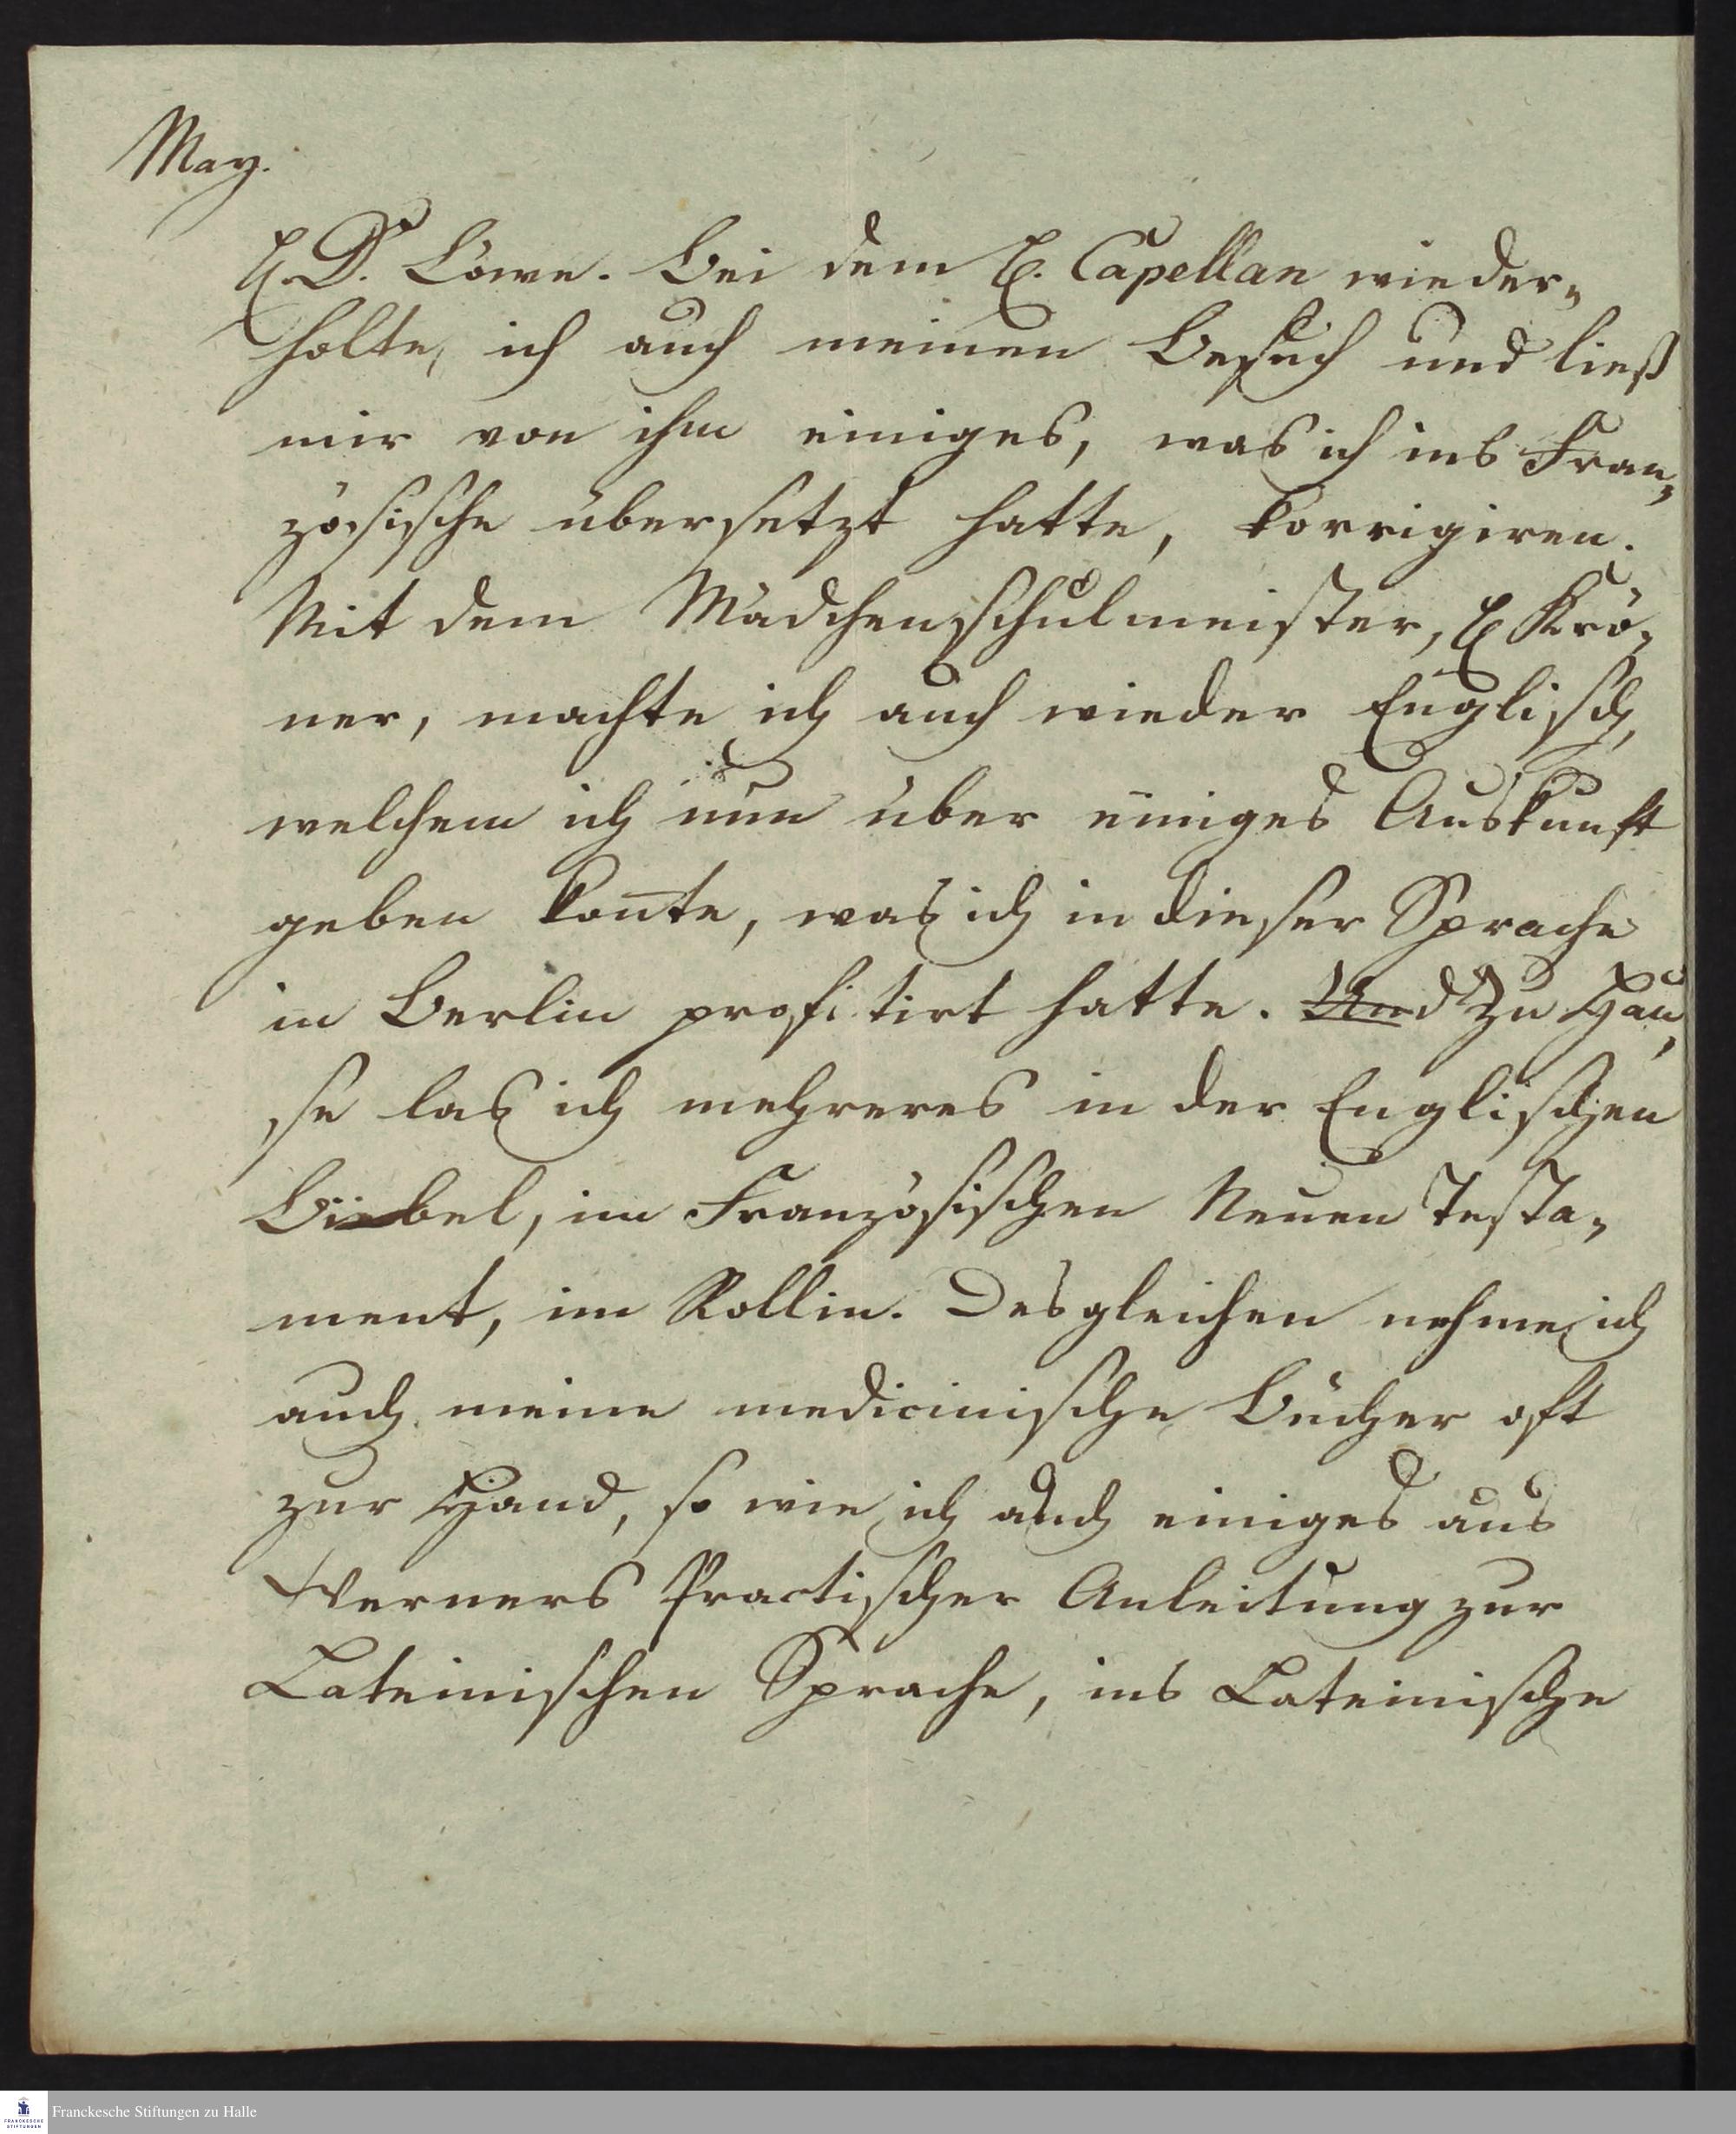 May.
H. Dr. Löwe. Bei dem H. Capellan wieder„
holte ich auch meinen Besuch und ließ
mir von ihm einiges, was ich ins Fran„
zösische übersetzt hatte, korrigiren.
Mit dem Mädchenschulmeister, H Krö„
ner, machte ich auch wieder Englisch,
welchem ich nun über einiges Auskunft
geben kon̄te, was ich in dieser Sprache
in Berlin profitirt hatte. Und Zu Hau„
se las ich mehreres in der Englischen
Bibel, im Französischen Neuen Testa„
ment, im Rollin. Desgleichen nehme ich
auch meine medicinische Bücher oft
zur Hand, so wie ich auch einiges aus
Werners Practischer Anleitung zur
Lateinischen Sprache, ins Lateinische
FRANCKESCHE
STIFTUNGEN
Franckesche Stiftungen zu Halle